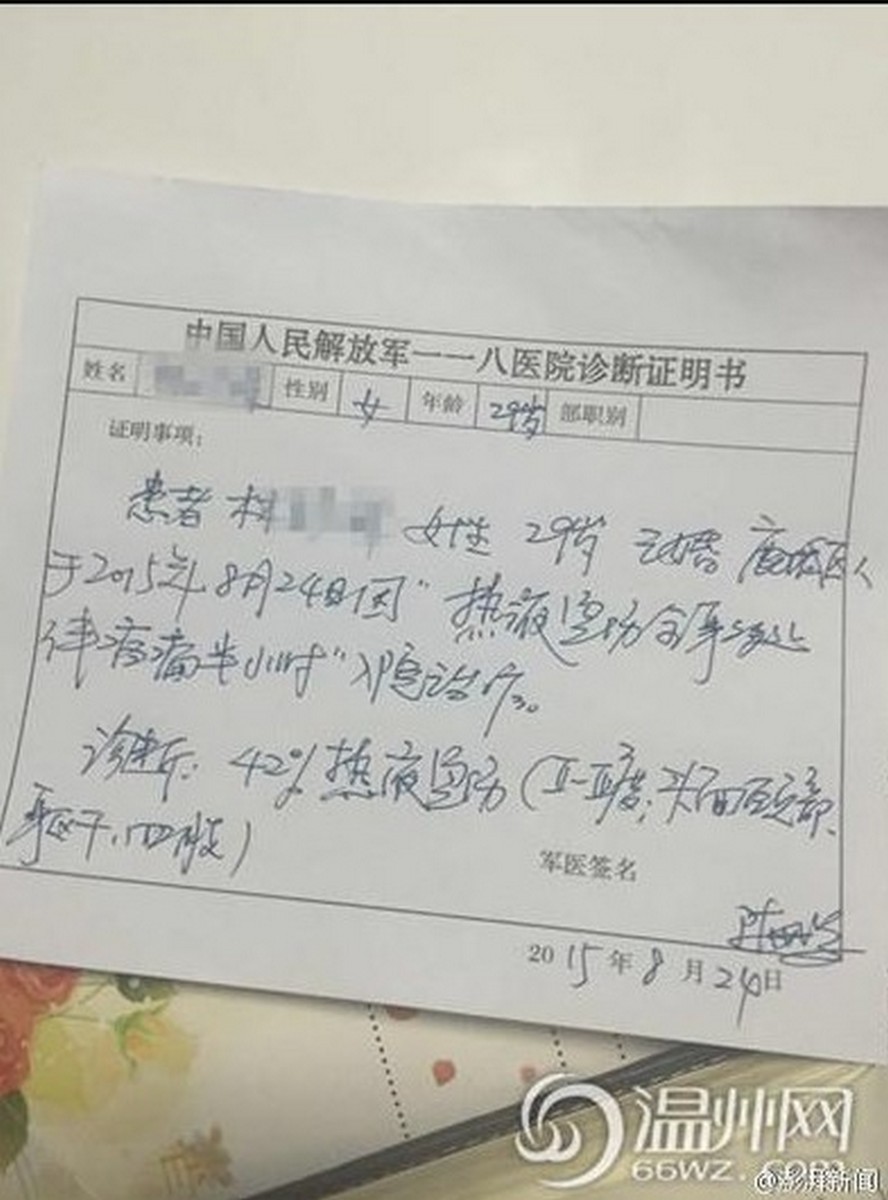 中国人民解放军一一八医院诊断证明书
姓名 性别 女 年龄 29岁 部职别
证明事项：
患者 林 女性 29岁 已婚
于2015年8月24日因"热液烫伤全身多处
伴疼痛半小时"入院治疗。
诊断：42%热液烫伤（Ⅱ-Ⅲ度，头面颈部、
躯干、四肢）
军医签名
2015年8月24日
温州网
66WZ.COM
@澎湃新闻